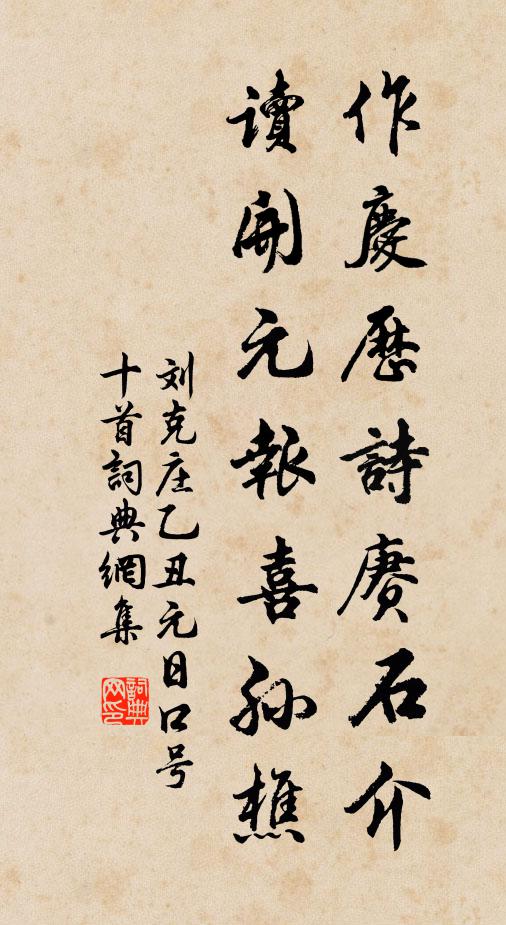 作慶歷詩賡石介
读開元報喜孙樵
刘克庄乙丑元日口号
十首詞典網集
詞典网印